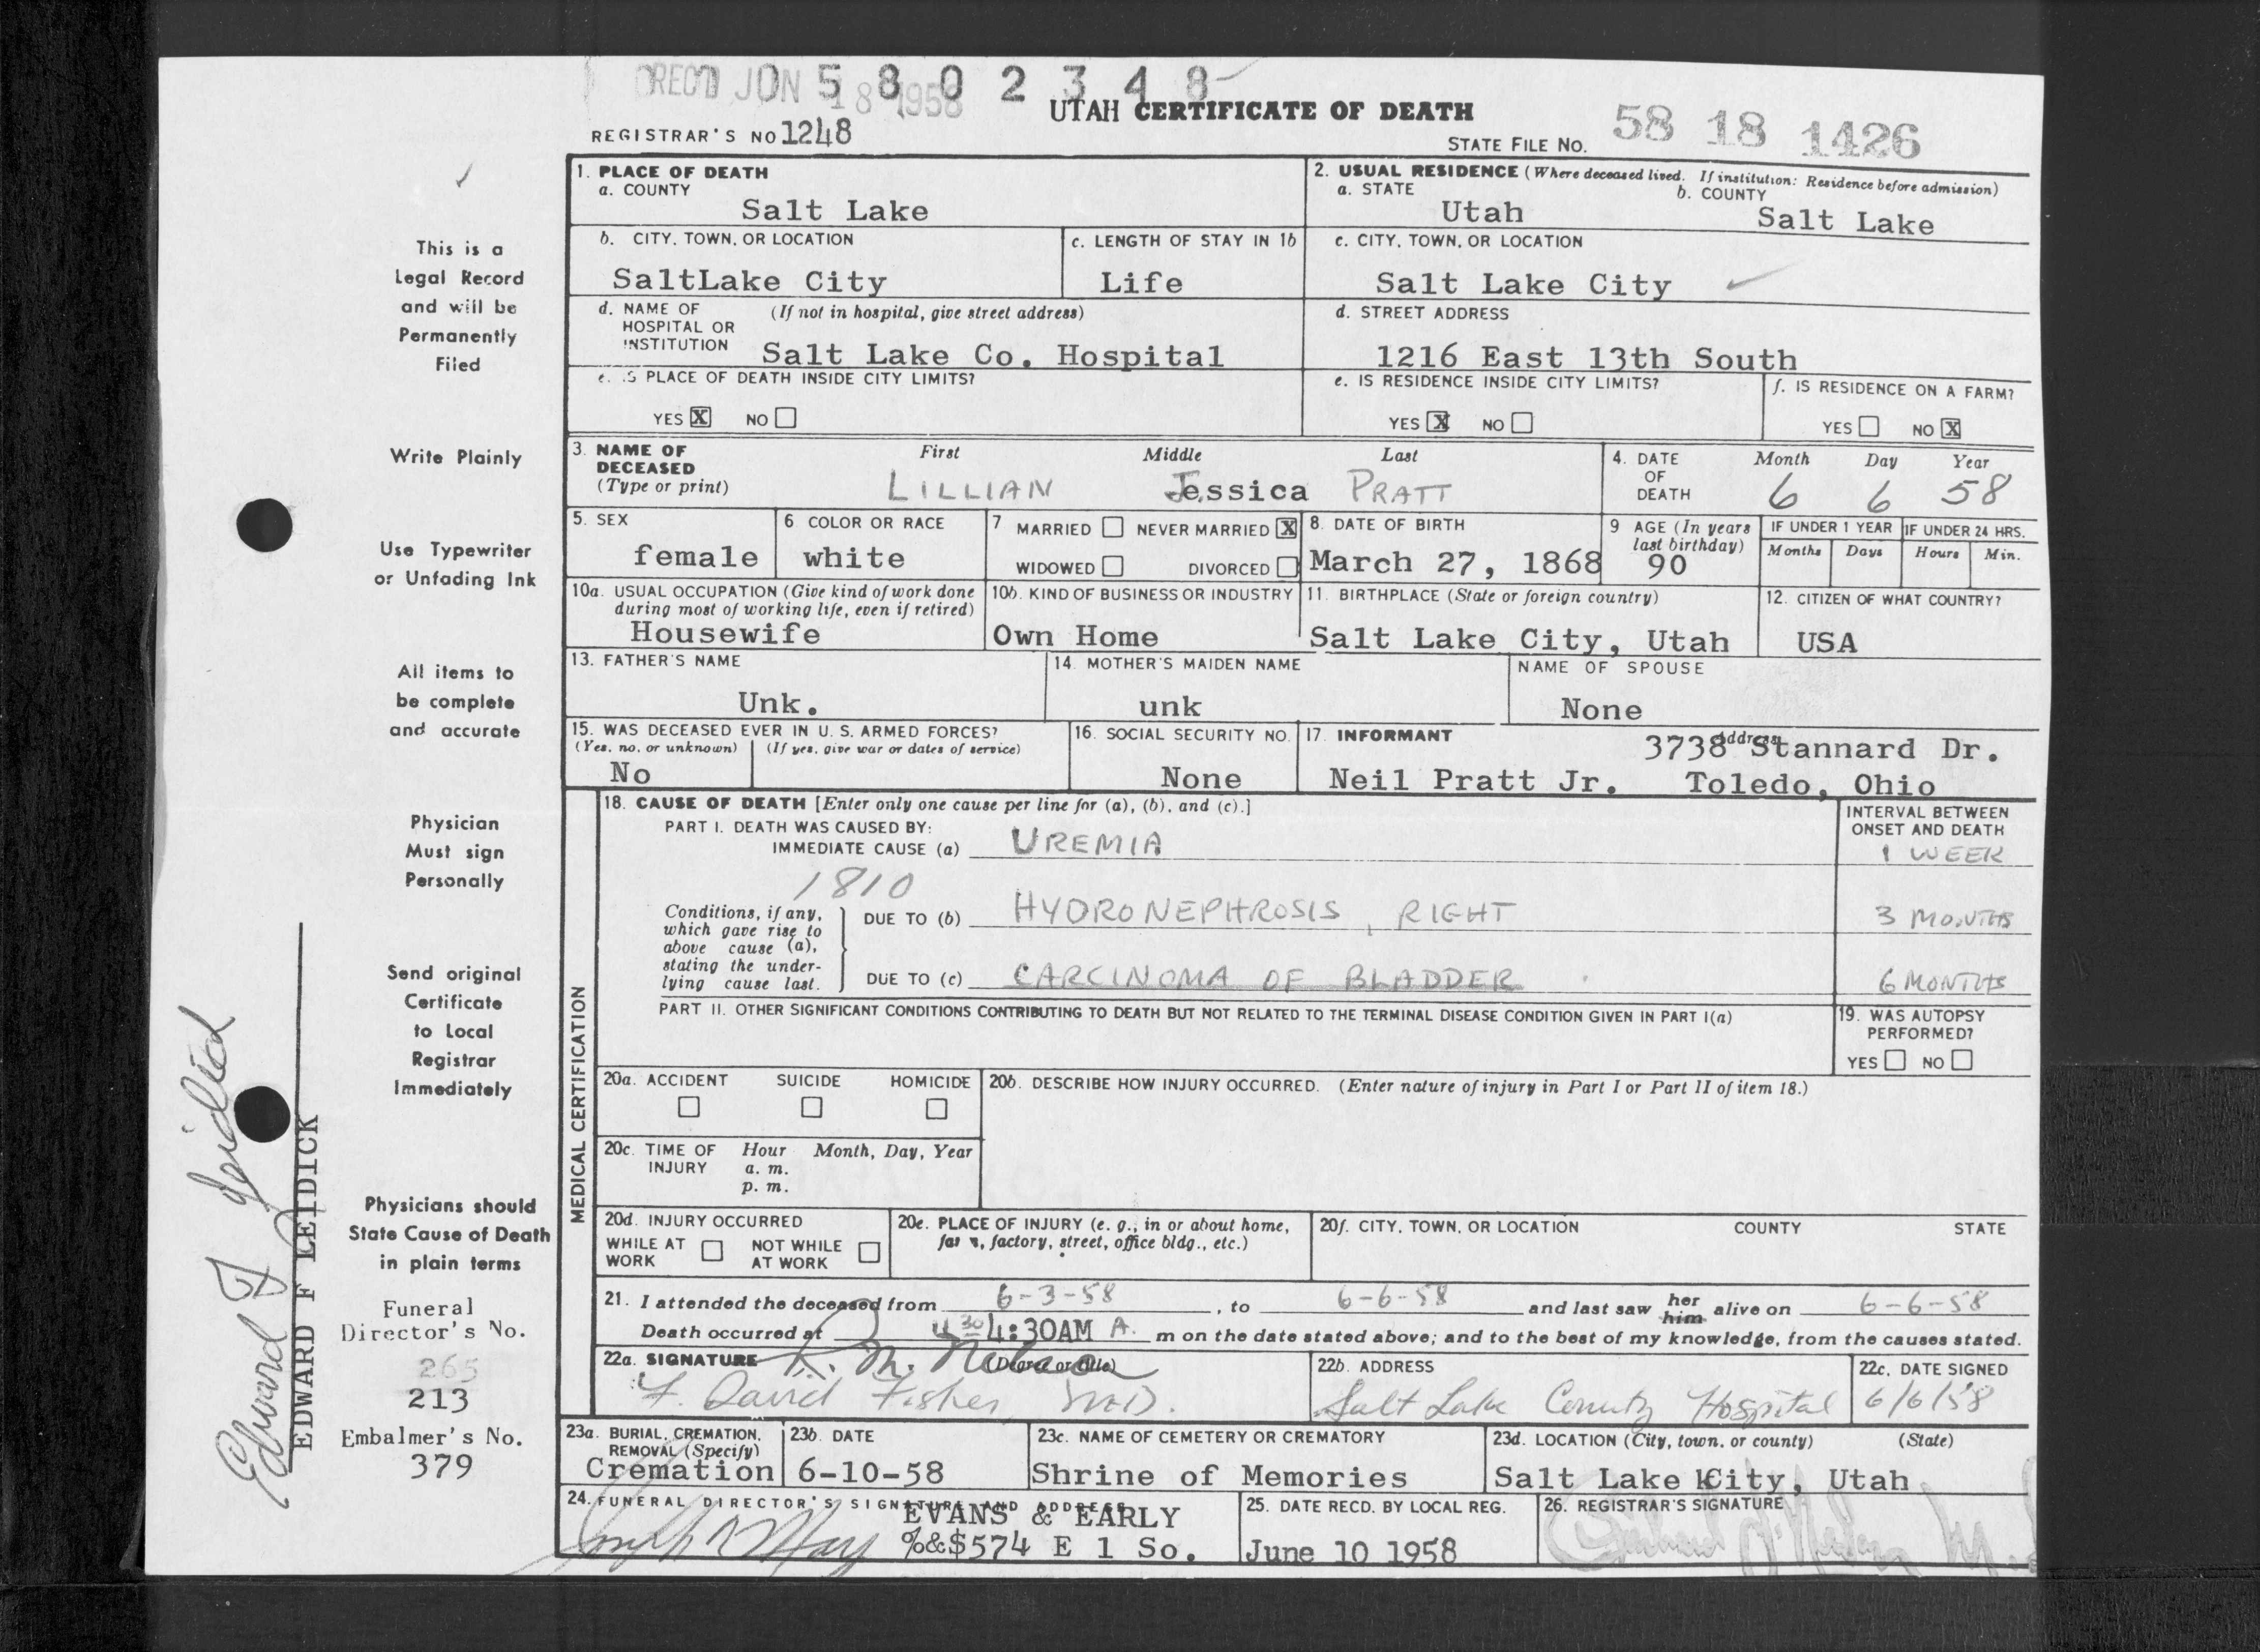 RECD JUN 18 1958
5 8 0 2 3 4 8
UTAH CERTIFICATE OF DEATH
REGISTRAR'S NO 1248
STATE FILE NO. 58 18 1426
This is a
Legal Record
and will be
Permanently
Filed
Write Plainly
Use Typewriter
or Unfading Ink
All items to
be complete
and accurate
Physician
Must sign
Personally
Send original
Certificate
to Local
Registrar
Immediately
Physicians should
State Cause of Death
in plain terms
Funeral
Director's No.
265
213
Embalmer's No.
379
EDWARD F LEIDICK
1. PLACE OF DEATH
a. COUNTY
Salt Lake
2. USUAL RESIDENCE (Where deceased lived. If institution: Residence before admission)
a. STATE b. COUNTY
Utah Salt Lake
b. CITY, TOWN, OR LOCATION
SaltLake City
c. LENGTH OF STAY IN 1b
Life
c. CITY, TOWN, OR LOCATION
Salt Lake City
d. NAME OF (If not in hospital, give street address)
HOSPITAL OR
INSTITUTION Salt Lake Co. Hospital
d. STREET ADDRESS
1216 East 13th South
e. IS PLACE OF DEATH INSIDE CITY LIMITS?
YES X NO
e. IS RESIDENCE INSIDE CITY LIMITS?
YES X NO
f. IS RESIDENCE ON A FARM?
YES NO X
3. NAME OF
DECEASED
(Type or print)
First Middle Last
LILLIAN Jessica PRATT
4. DATE
OF
DEATH
Month Day Year
6 6 58
5. SEX
female
6 COLOR OR RACE
white
7 MARRIED NEVER MARRIED X
WIDOWED DIVORCED
8. DATE OF BIRTH
March 27, 1868
9 AGE (In years
last birthday)
90
IF UNDER 1 YEAR
Months Days
IF UNDER 24 HRS.
Hours Min.
10a. USUAL OCCUPATION (Give kind of work done
during most of working life, even if retired)
Housewife
10b. KIND OF BUSINESS OR INDUSTRY
Own Home
11. BIRTHPLACE (State or foreign country)
Salt Lake City, Utah
12. CITIZEN OF WHAT COUNTRY?
USA
13. FATHER'S NAME
Unk.
14. MOTHER'S MAIDEN NAME
unk
NAME OF SPOUSE
None
15. WAS DECEASED EVER IN U. S. ARMED FORCES?
(Yes, no, or unknown) (If yes, give war or dates of service)
No
16. SOCIAL SECURITY NO.
None
17. INFORMANT Address
3738 Stannard Dr.
Neil Pratt Jr. Toledo, Ohio
MEDICAL CERTIFICATION
18. CAUSE OF DEATH [Enter only one cause per line for (a), (b), and (c).]
PART I. DEATH WAS CAUSED BY:
IMMEDIATE CAUSE (a) UREMIA
INTERVAL BETWEEN
ONSET AND DEATH
1 WEEK
1810
Conditions, if any,
which gave rise to
above cause (a),
stating the under-
lying cause last.
DUE TO (b) HYDRONEPHROSIS, RIGHT 3 MONTHS
DUE TO (c) CARCINOMA OF BLADDER 6 MONTHS
PART II. OTHER SIGNIFICANT CONDITIONS CONTRIBUTING TO DEATH BUT NOT RELATED TO THE TERMINAL DISEASE CONDITION GIVEN IN PART I(a)
19. WAS AUTOPSY
PERFORMED?
YES NO
20a. ACCIDENT SUICIDE HOMICIDE
20b. DESCRIBE HOW INJURY OCCURRED. (Enter nature of injury in Part I or Part II of item 18.)
20c. TIME OF Hour Month, Day, Year
INJURY a. m.
p. m.
20d. INJURY OCCURRED
WHILE AT NOT WHILE
WORK AT WORK
20e. PLACE OF INJURY (e. g., in or about home,
farm, factory, street, office bldg., etc.)
20f. CITY, TOWN, OR LOCATION COUNTY STATE
21. I attended the deceased from 6-3-58, to 6-6-58 and last saw her him alive on 6-6-58
Death occurred at 4 30 4:30AM A. m on the date stated above; and to the best of my knowledge, from the causes stated.
22a. SIGNATURE (Degree or title)
F. David Fisher, M.D.
22b. ADDRESS
Salt Lake County Hospital
22c. DATE SIGNED
6/6/58
23a. BURIAL, CREMATION,
REMOVAL (Specify)
Cremation
23b. DATE
6-10-58
23c. NAME OF CEMETERY OR CREMATORY
Shrine of Memories
23d. LOCATION (City, town, or county) (State)
Salt Lake City, Utah
24. FUNERAL DIRECTOR'S SIGNATURE AND ADDRESS
EVANS & EARLY
%&$574 E 1 So.
25. DATE RECD. BY LOCAL REG.
June 10 1958
26. REGISTRAR'S SIGNATURE